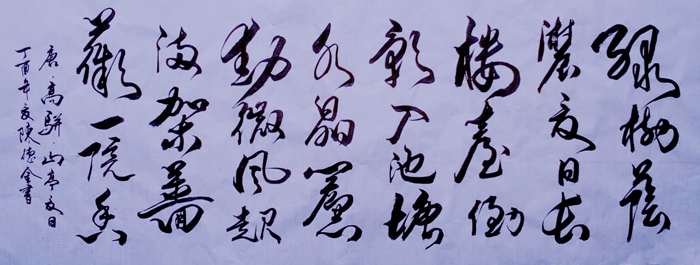 綠樹蔭
濃夏日長
樓臺倒
影入池塘
水晶簾
動微風起
滿架薔
薇一院香
唐·高駢·山亭夏日
丁酉年夏陳德金書